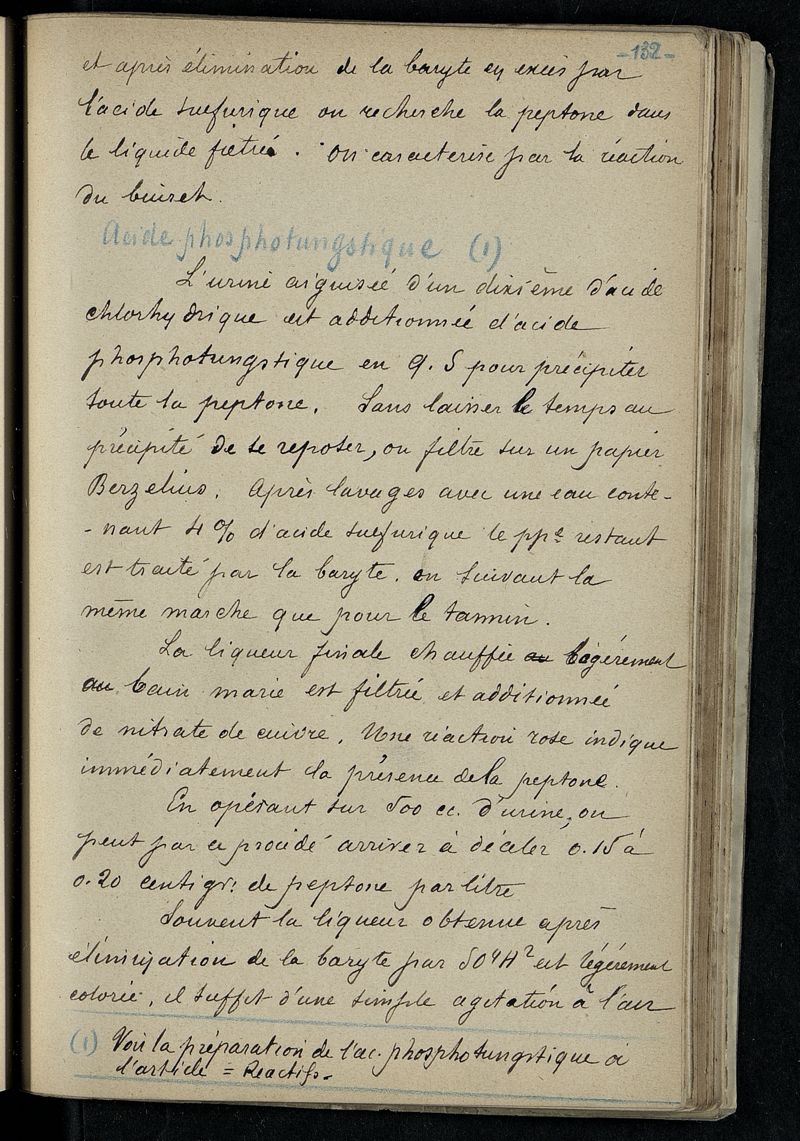 -132-
et après élimination de la baryte en excès par
l'acide sulfurique on recherche la peptone dans
le liquide filtré. On caracterise par la réaction
du biuret.
Acide phosphotungstique (1)
L'urine aiguisée d'un dixième d'acide
chlorhydrique est additionnée d'acide
phosphotungstique en q. S pour précipiter
toute la peptone. Sans laisser le temps au
précipité de se reposer, on filtre sur un papier
Berzelius. Après lavages avec une eau conte-
-nant 4% d'acide sulfurique le ppé restant
est traité par la baryte. en suivant la
même marche que pour le tannin.
La liqueur finale chauffée au légérement
au bain marie est filtrée et additionnée
de nitrate de cuivre. Une réaction rose indique
immédiatement la présence de la peptone.
En opérant sur 500 cc. d'urine, on
peut par ce procédé arriver à déceler 0.15 à
0.20 centigr: de peptone par litre
Souvent la liqueur obtenue après
élimination de la baryte par SO4H2 est légérement
colorée, il suffit d'une simple agitation à l'air
(1) Voir la préparation de l'ac. phosphotungstique à
l'article = Reactifs-